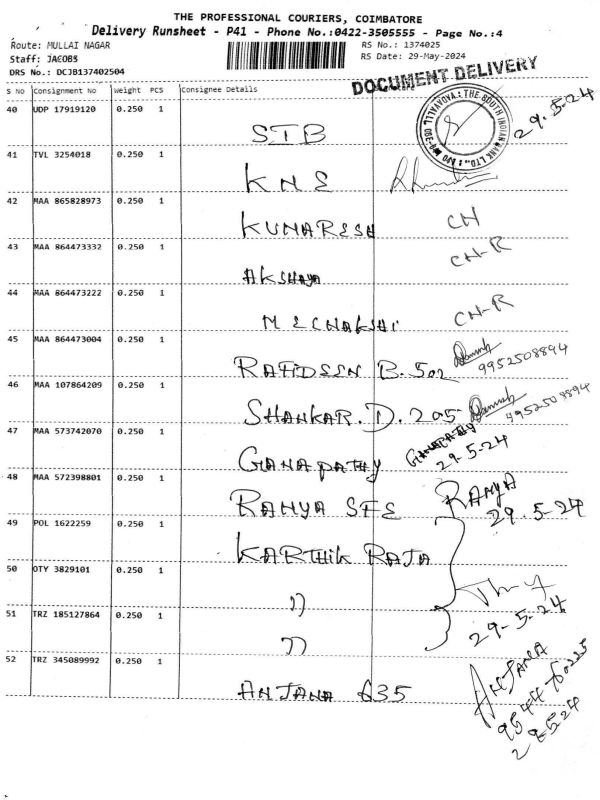 THE PROFESSIONAL COURIERS, COIMBATORE
Delivery Runsheet - P41 - Phone No.:0422-3505555 - Page No.:4
Route: MULLAI NAGAR RS No.: 1374025
Staff: JACOB3 RS Date: 29-May-2024
DRS No.: DCJB137402504
DOCUMENT DELIVERY
S NO Consignment No Weight PCS Consignee Details
40 UDP 17919120 0.250 1 STB 29.5-24
THE SOUTH INDIAN BANK LTD.,
41 TVL 3254018 0.250 1 KNE
42 MAA 865828973 0.250 1 KUMARESH CN
43 MAA 864473332 0.250 1 AKSHAYA CN-R
44 MAA 864473222 0.250 1 MEENAKSHI CN-R
45 MAA 864473004 0.250 1 B.502 9952508894
46 MAA 107864209 0.250 1 SHANKAR.D.205 9952508894
47 MAA 573742070 0.250 1 GANAPATHY GANAPATHY
29-5-24
48 MAA 572398801 0.250 1 RAMYA SFS RAMYA
29.5-24
49 POL 1622259 0.250 1 KARTHIK RAJA
50 OTY 3829101 0.250 1 "
51 TRZ 185127864 0.250 1 " 29-5-24
52 TRZ 345089992 0.250 1 ANJANA 635 ANJANA